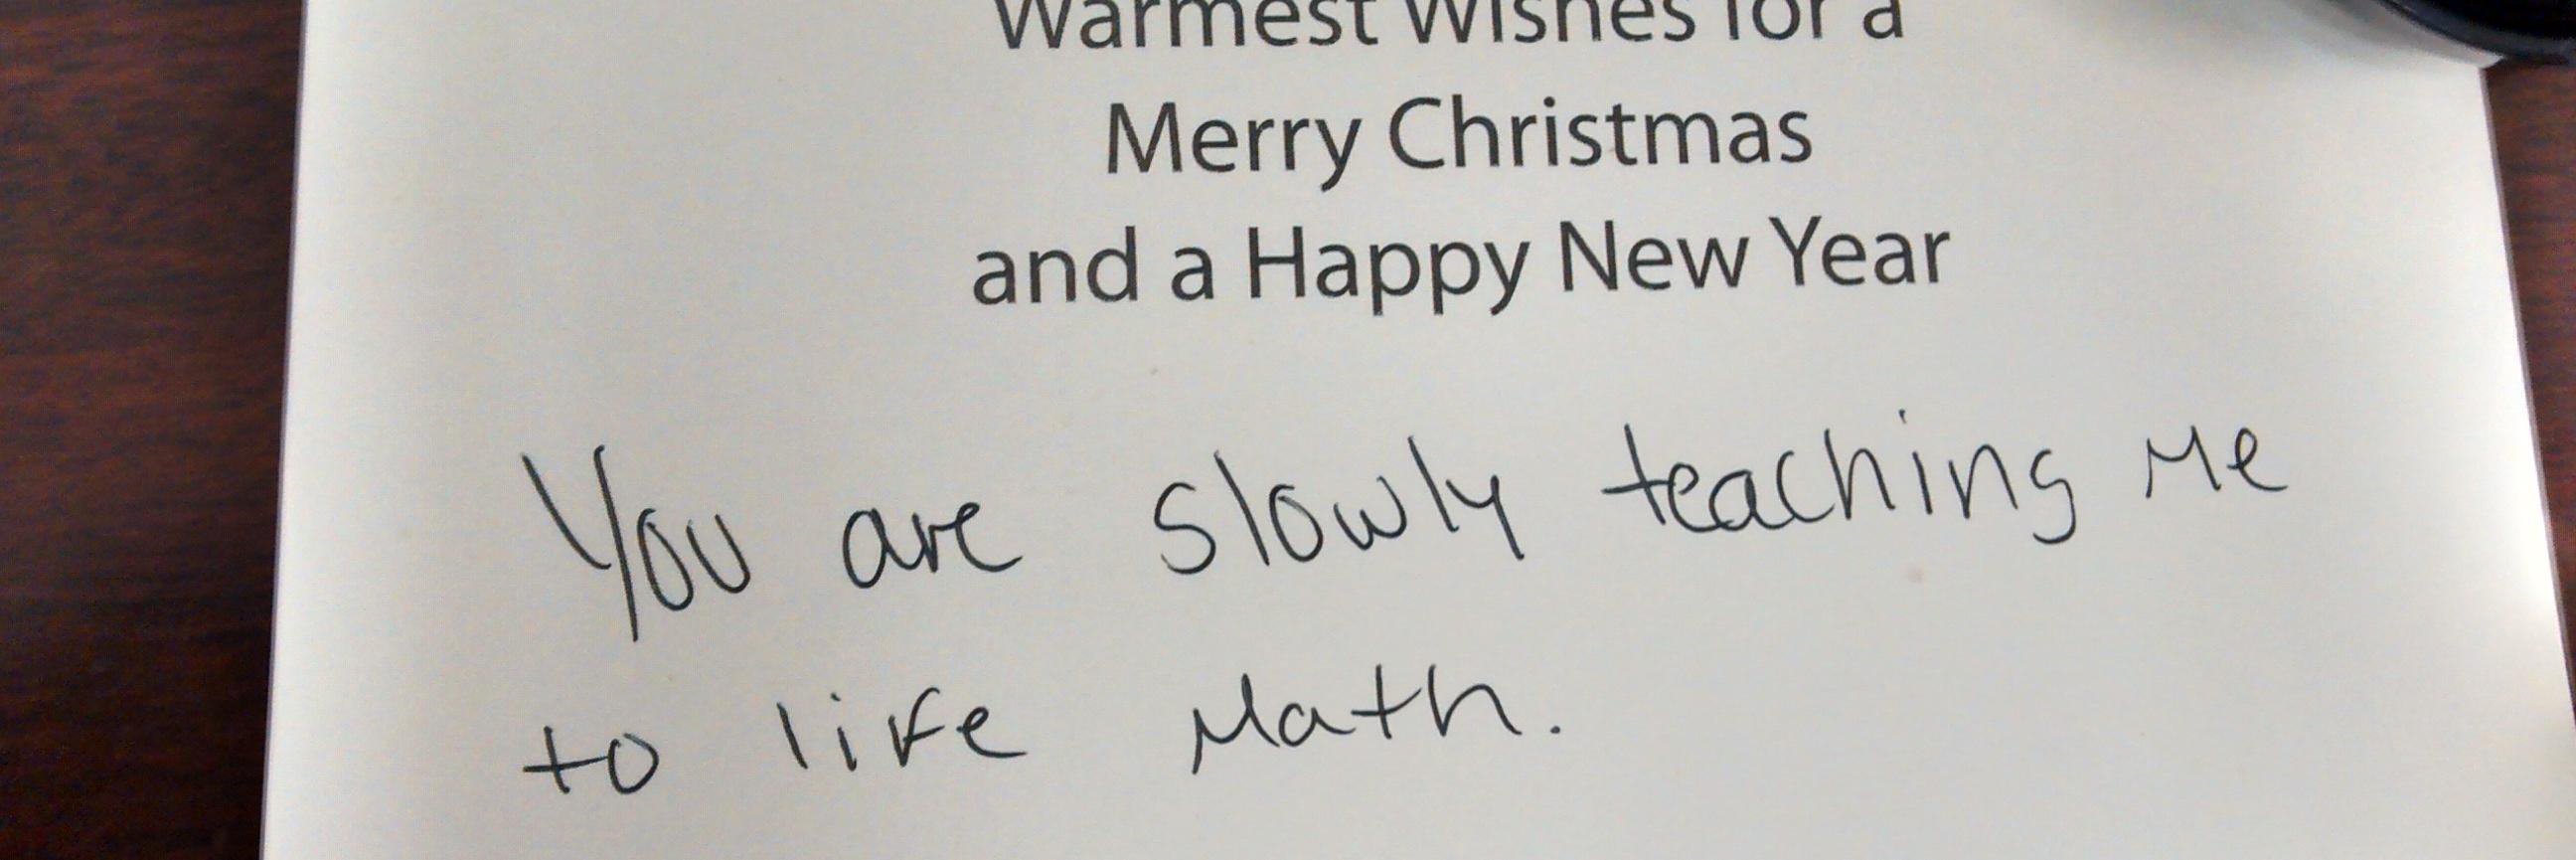 Warmest Wishes for a
Merry Christmas
and a Happy New Year
You are slowly teaching me
to like Math.